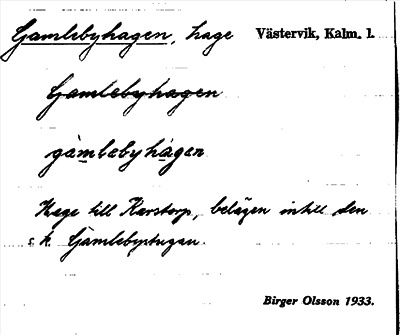 Gamlebyhagen, hage Västervik, Kalm. l.
Gamlebyhagen
gàmlebyhàgen
Hage till Karstorp, belägen intill den
s.k. Gamlebystugan.
Birger Olsson 1933.